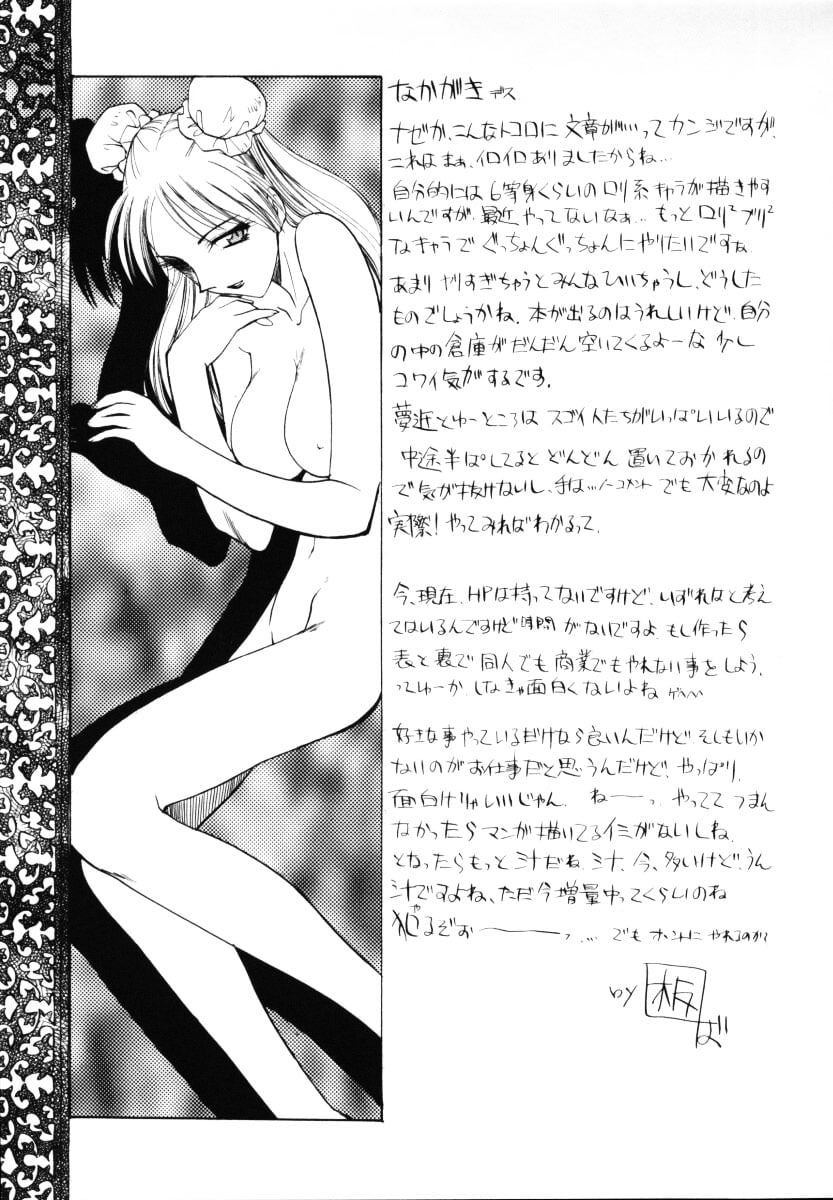 なかがきデス
ナゼか、こんなトコロに文章が…ってカンジですが、
これはまぁ、イロイロありましたからね…
自分的には6等身くらいのロリ系キャラが描きやす
いんですが、最近やってないなぁ…もっとロリ²プリ²
なキャラでぐっちょんぐっちょんにやりたいですね
あまりやりすぎちゃうとみんなひいちゃうし、どうした
ものでしょうかね。本が出るのはうれしいけど、自分
の中の倉庫がだんだん空いてくるよーな少し
コワイ気がするです。
夢近とゆーところはスゴイ人たちがいっぱいいるので
中途半ぱしてるとどんどん置いておかれるの
で気が抜けないし、手は…ノーコメントでも大変なのよ
実際!やってみればわかるって.
今、現在、HPは持ってないですけど、いずれはと考え
てはいるんですけど時間がないですよもし作ったら
表と裏で同人でも商業でもやれない事をしよう、
ってゆーか、しなきゃ面白くないよね
好きな事やっているだけなら良いんだけど、そしもいか
ないのがお仕事だと思うんだけど、やっぱり、
面白けりゃいいじゃん、ねーっ、やっててつまん
なかったらマンが描いてるイミがないしね、
となったらもっと汁だね、ミ汁、今、多いけど、うん
汁ですよね、ただ今増量中ってくらいのね
犯るぞぉーーっ…でもホントにやれるのか?
by 板ば